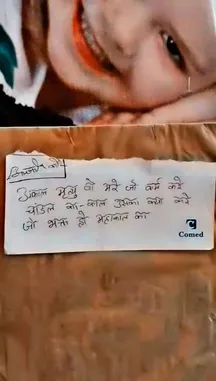 अकाल मृत्यु वो मरे जो कर्म करे
चांडाल का - काल उसका क्या करे
जो भक्त हो महाकाल का
Comed